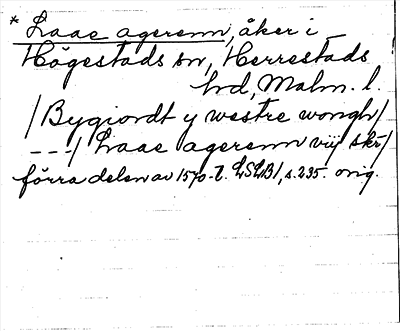 * Laae agerenn, åker i
Högestads sn, Herrestads
hd, Malm. l.
/ Bygiordt y westre wongh /
--- / Laae agerenn viij skr /
förra delen av 1570-t. LSLB 1, s. 235. orig.